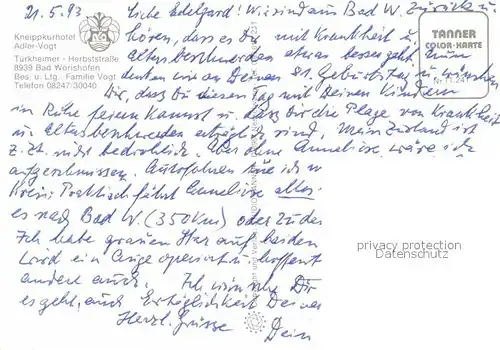 21.5.93
Kneippkurhotel
Adler-Vogt
Türkheimer - Herbststraße
8939 Bad Wörishofen
Bes. u. Ltg. Familie Vogt
Telefon 08247/30040
TANNER
COLOR-KARTE
Liebe Edelgard! Wir sind aus Bad W. zurück u.
hören, dass es Dir mit Krankheit u.
Altersbeschwerden etwas besser geht. Nun
denken wir an Deinen 81. Geburtstag u. wünschen
Dir, dass Du diesen Tag mit Deinen Kindern
in Ruhe feiern kannst u. dass Dir die Plage von Krankheit
u. Altersbeschwerden erträglich sind. Mein Zustand ist
z. Zt. nicht bedrohlich. Aber ohne Anneliese wäre ich
aufgeschmissen. Autofahren tue ich
Kreis. Praktisch fährt Anneliese alles.
es nach Bad W. (350 km) oder zu
Ich habe grauen Star auf beiden
wird ein Auge operiert u. hoffentl.
andere auch. Ich wünsche Dir
es geht, auch Erträglichkeit Deiner
Herzl. Grüsse Dein
privacy protection
Datenschutz